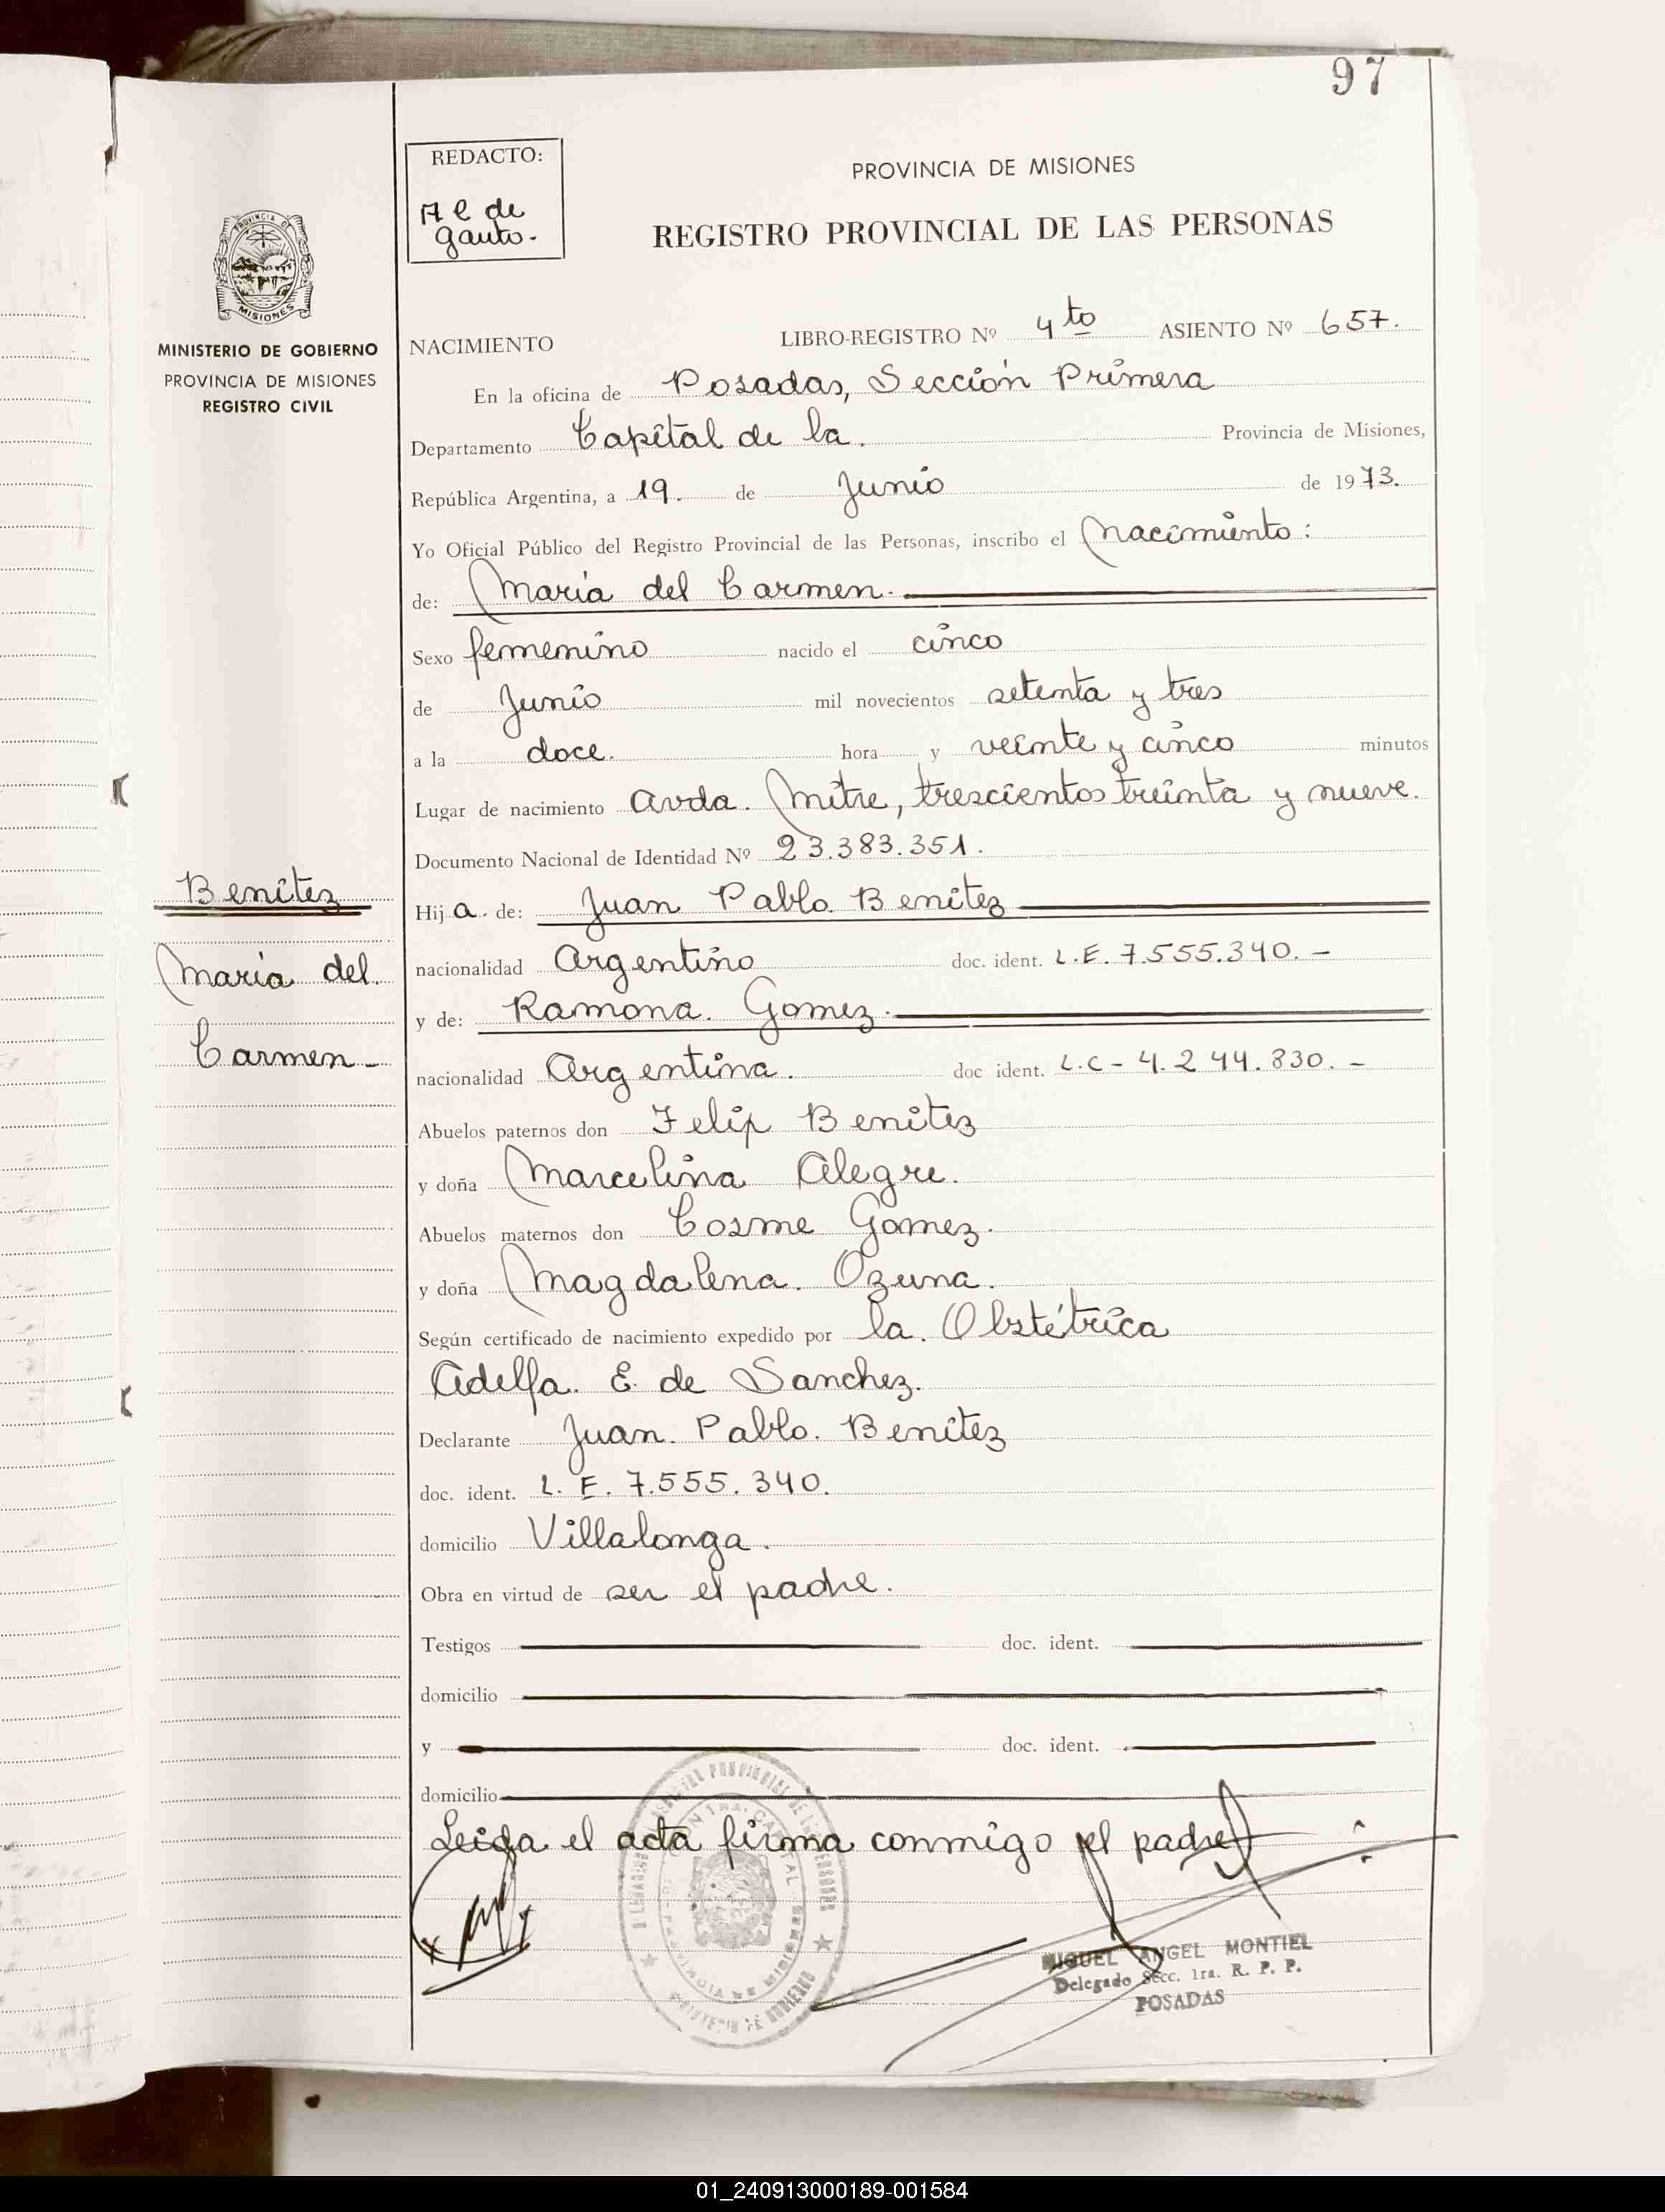 97
REDACTO:
A e de
gauto.
PROVINCIA DE MISIONES
REGISTRO PROVINCIAL DE LAS PERSONAS
PROVINCIA DE
MISIONES
MINISTERIO DE GOBIERNO
PROVINCIA DE MISIONES
REGISTRO CIVIL
NACIMIENTO LIBRO-REGISTRO Nº 4to ASIENTO Nº 657.
En la oficina de Posadas, Sección Primera
Departamento Capital de la. Provincia de Misiones,
República Argentina, a 19. de Junio de 1973.
Yo Oficial Público del Registro Provincial de las Personas, inscribo el Nacimiento:
de: María del Carmen.
Sexo femenino nacido el cinco
de Junio mil novecientos setenta y tres
a la doce. hora y veinte y cinco minutos
Lugar de nacimiento avda. Mitre, trescientos treinta y nueve.
Documento Nacional de Identidad Nº 23.383.351.
Benitez
María del
Carmen -
Hij a. de: Juan Pablo Benitez
nacionalidad Argentino doc. ident. L.E. 7.555.340. -
y de: Ramona. Gomez.
nacionalidad Argentina. doc ident. L.C - 4.244.830. -
Abuelos paternos don Felip Benitez
y doña Marcelina Alegre.
Abuelos maternos don Cosme Gomez.
y doña Magdalena. Ozuna.
Según certificado de nacimiento expedido por la. Obstétrica
Adelfa. E. de Sanchez.
Declarante Juan. Pablo. Benitez
doc. ident. L. E. 7.555.340.
domicilio Villalonga.
Obra en virtud de ser el padre.
Testigos doc. ident.
domicilio
y doc. ident.
domicilio
Leida el acta firma conmigo el padre
MIGUEL ANGEL MONTIEL
Delegado Secc. 1ra. R. P. P.
POSADAS
01_240913000189-001584